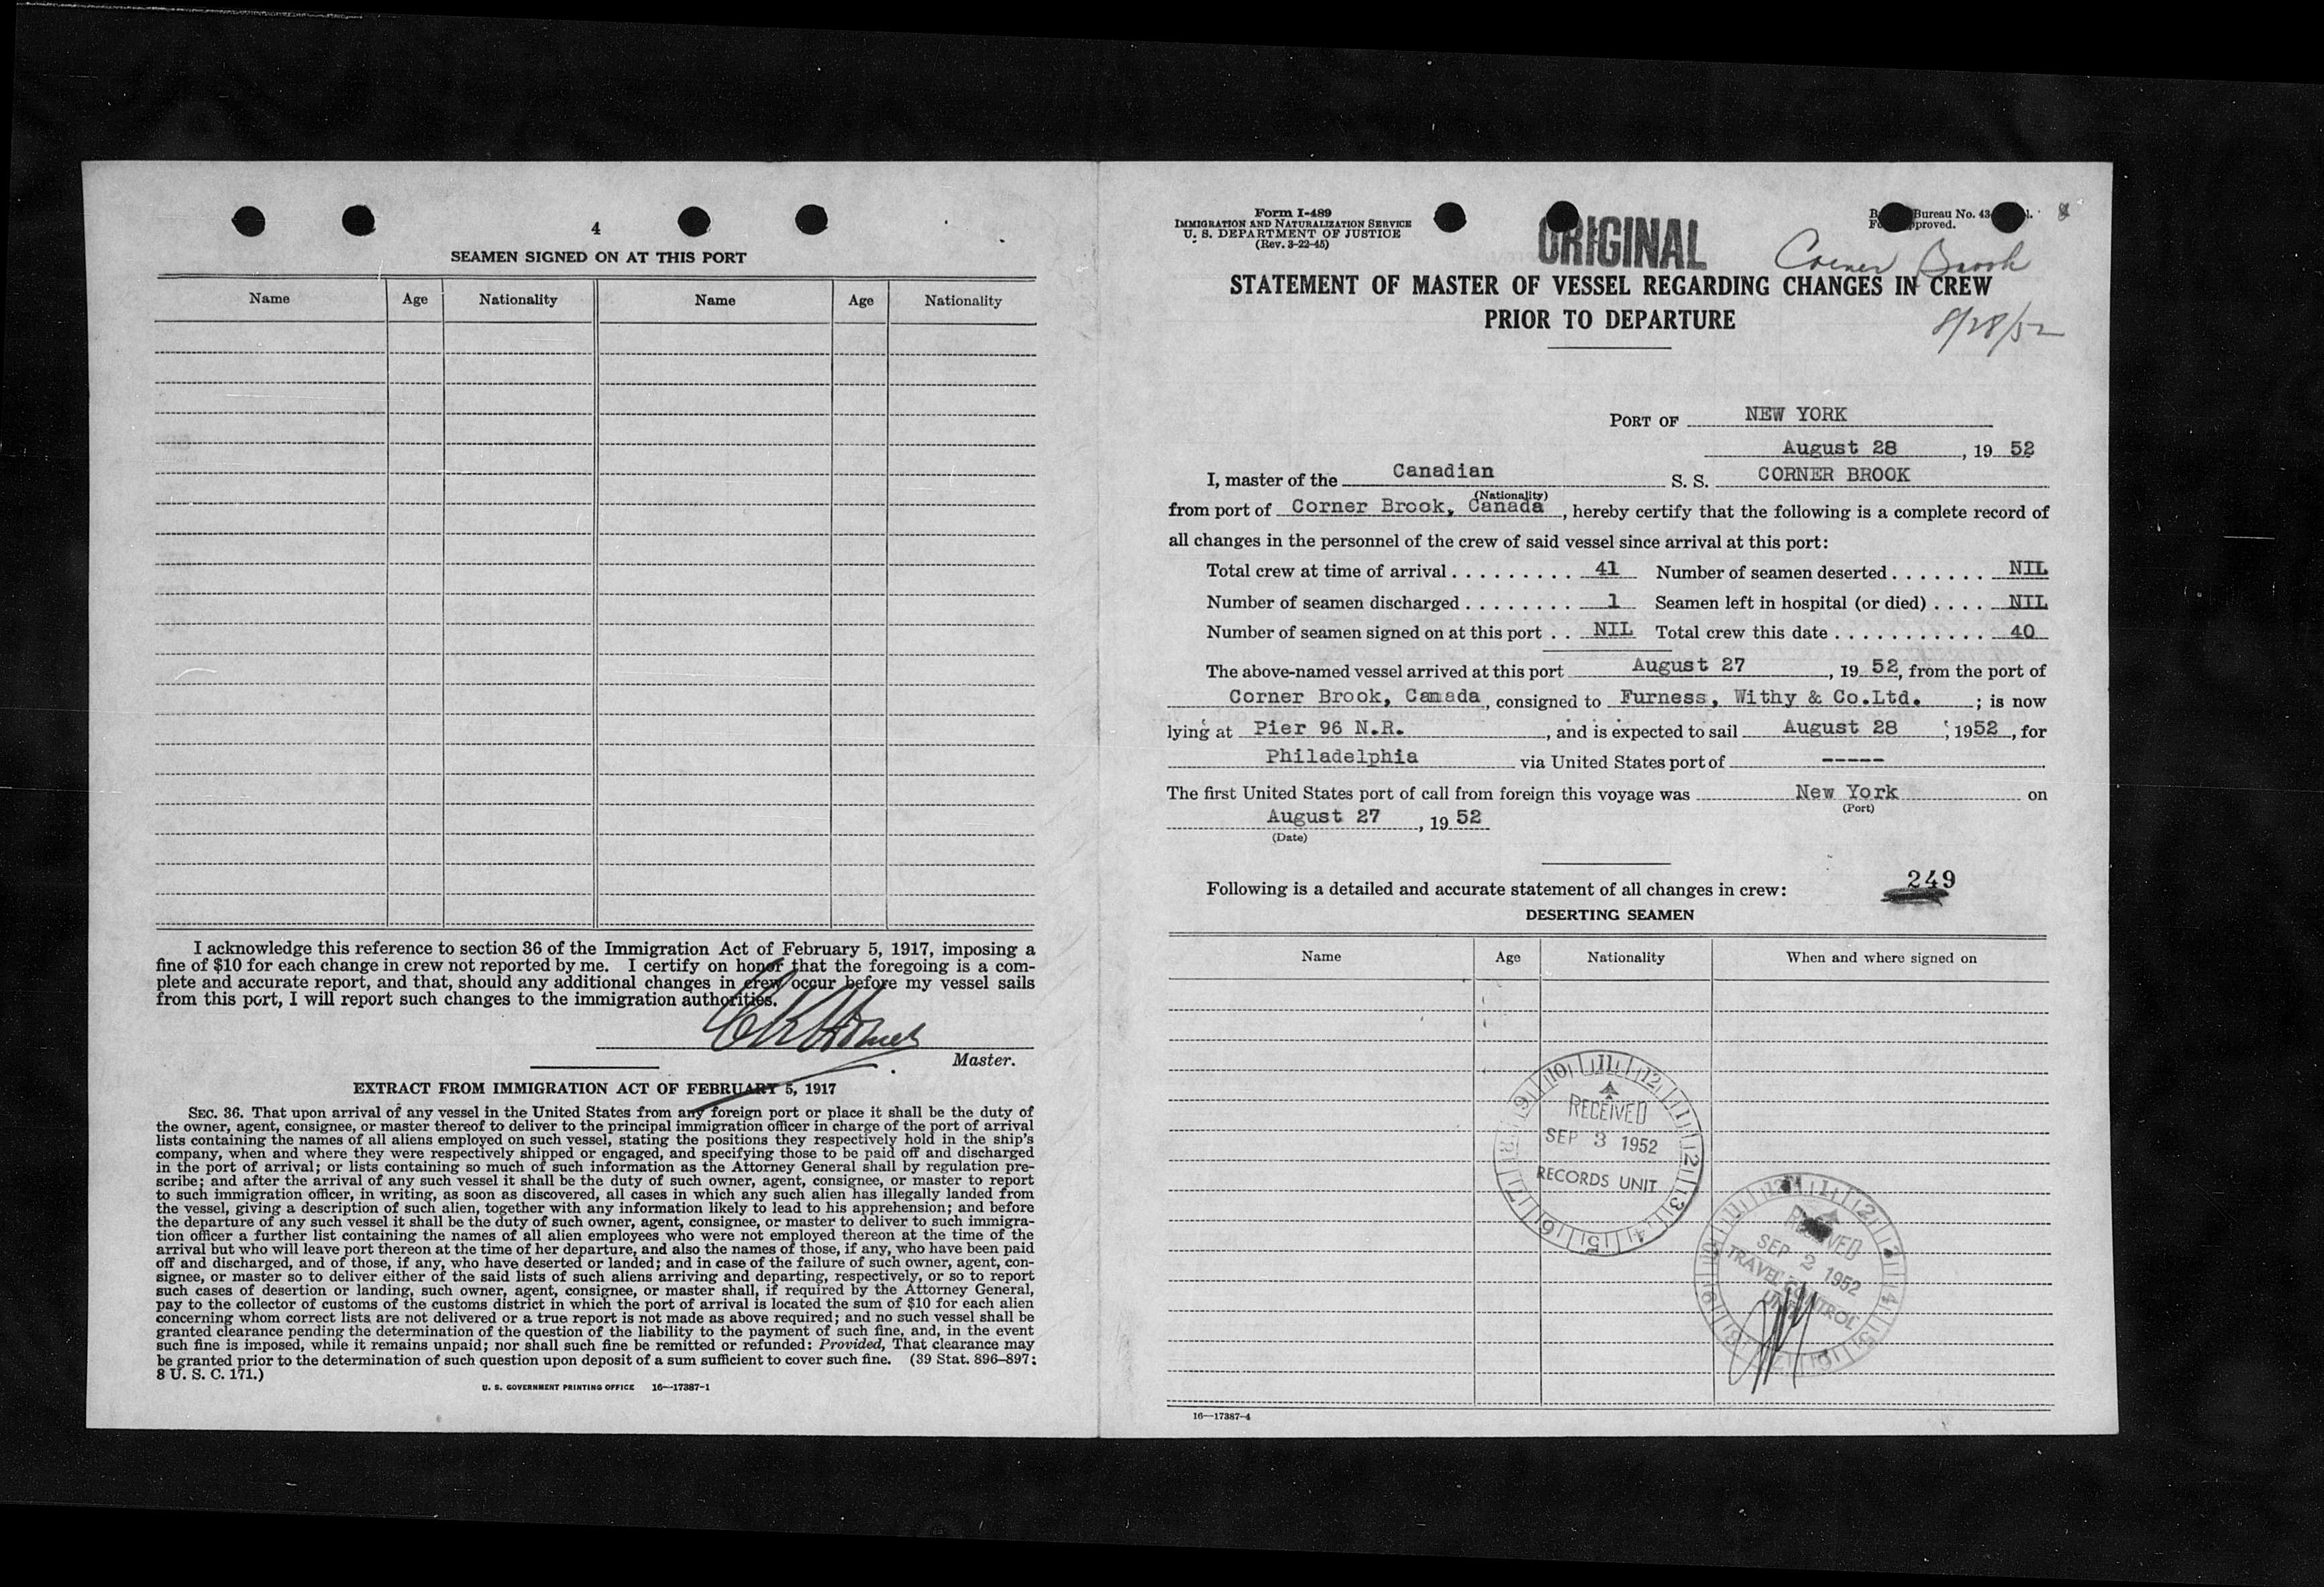 4
SEAMEN SIGNED ON AT THIS PORT
Name Age Nationality Name Age Nationality
I acknowledge this reference to section 36 of the Immigration Act of February 5, 1917, imposing a
fine of $10 for each change in crew not reported by me. I certify on honor that the foregoing is a com-
plete and accurate report, and that, should any additional changes in crew occur before my vessel sails
from this port, I will report such changes to the immigration authorities.
Master.
EXTRACT FROM IMMIGRATION ACT OF FEBRUARY 5, 1917
SEC. 36. That upon arrival of any vessel in the United States from any foreign port or place it shall be the duty of
the owner, agent, consignee, or master thereof to deliver to the principal immigration officer in charge of the port of arrival
lists containing the names of all aliens employed on such vessel, stating the positions they respectively hold in the ship's
company, when and where they were respectively shipped or engaged, and specifying those to be paid off and discharged
in the port of arrival; or lists containing so much of such information as the Attorney General shall by regulation pre-
scribe; and after the arrival of any such vessel it shall be the duty of such owner, agent, consignee, or master to report
to such immigration officer, in writing, as soon as discovered, all cases in which any such alien has illegally landed from
the vessel, giving a description of such alien, together with any information likely to lead to his apprehension; and before
the departure of any such vessel it shall be the duty of such owner, agent, consignee, or master to deliver to such immigra-
tion officer a further list containing the names of all alien employees who were not employed thereon at the time of the
arrival but who will leave port thereon at the time of her departure, and also the names of those, if any, who have been paid
off and discharged, and of those, if any, who have deserted or landed; and in case of the failure of such owner, agent, con-
signee, or master so to deliver either of the said lists of such aliens arriving and departing, respectively, or so to report
such cases of desertion or landing, such owner, agent, consignee, or master shall, if required by the Attorney General,
pay to the collector of customs of the customs district in which the port of arrival is located the sum of $10 for each alien
concerning whom correct lists are not delivered or a true report is not made as above required; and no such vessel shall be
granted clearance pending the determination of the question of the liability to the payment of such fine, and, in the event
such fine is imposed, while it remains unpaid; nor shall such fine be remitted or refunded: Provided, That clearance may
be granted prior to the determination of such question upon deposit of a sum sufficient to cover such fine. (39 Stat. 896-897;
8 U. S. C. 171.)
U. S. GOVERNMENT PRINTING OFFICE 16—17387-1
Form I-489
IMMIGRATION AND NATURALIZATION SERVICE
U. S. DEPARTMENT OF JUSTICE
(Rev. 3-22-45)
Bureau No. 43
ORIGINAL
Corner Brook
STATEMENT OF MASTER OF VESSEL REGARDING CHANGES IN CREW
PRIOR TO DEPARTURE
8/28/52
PORT OF NEW YORK
August 28, 19 52
I, master of the Canadian S. S. CORNER BROOK
(Nationality)
from port of Corner Brook, Canada, hereby certify that the following is a complete record of
all changes in the personnel of the crew of said vessel since arrival at this port:
Total crew at time of arrival . . . . . . . . . 41 Number of seamen deserted . . . . . . . NIL
Number of seamen discharged . . . . . . . . 1 Seamen left in hospital (or died) . . . . NIL
Number of seamen signed on at this port . . NIL Total crew this date . . . . . . . . . . . 40
The above-named vessel arrived at this port August 27, 19 52, from the port of
Corner Brook, Canada, consigned to Furness, Withy & Co.Ltd. ; is now
lying at Pier 96 N.R., and is expected to sail August 28, 1952, for
Philadelphia via United States port of -----
The first United States port of call from foreign this voyage was New York on
(Port)
August 27, 19 52
(Date)
Following is a detailed and accurate statement of all changes in crew: 249
DESERTING SEAMEN
Name Age Nationality When and where signed on
RECEIVED
SEP 3 1952
RECORDS UNIT
RECEIVED
SEP 2 1952
TRAVEL CONTROL
UNIT
16—17387-4